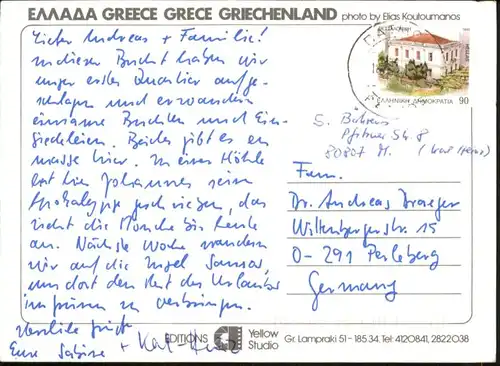 ΕΛΛΑΔΑ GREECE GRECE GRIECHENLAND photo by Elias Koutoumanos
Lieber Andreas + Familie!
In dieser Bucht haben wir
unser erstes Quartier aufge-
schlagen und erwandern
einsame Buchten und Ein-
siedeleien. Beides gibt es en
masse hier. In einer Höhle
hat hier Johannes seine
Apokalypse geschrieben, das
zieht die Mönche bis heute
an. Nächste Woche wandern
wir auf die Insel Samos,
um dort den Rest des Urlaubs
im grünen zu verbringen.
Herzliche Grüße
Eure Sabine + Karl-Heinz
ΕΛΛΗΝΙΚΗ ΔΗΜΟΚΡΑΤΙΑ 90
S.
Pfitzner Str. 8
80807 M.
Fam.
Dr. Andreas Draeger
Wittenbergerstr. 15
O-291 Perleberg
Germany
EDITIONS Yellow Studio Gr. Lampraki 51 - 185 34. Tel: 4120841, 2822038